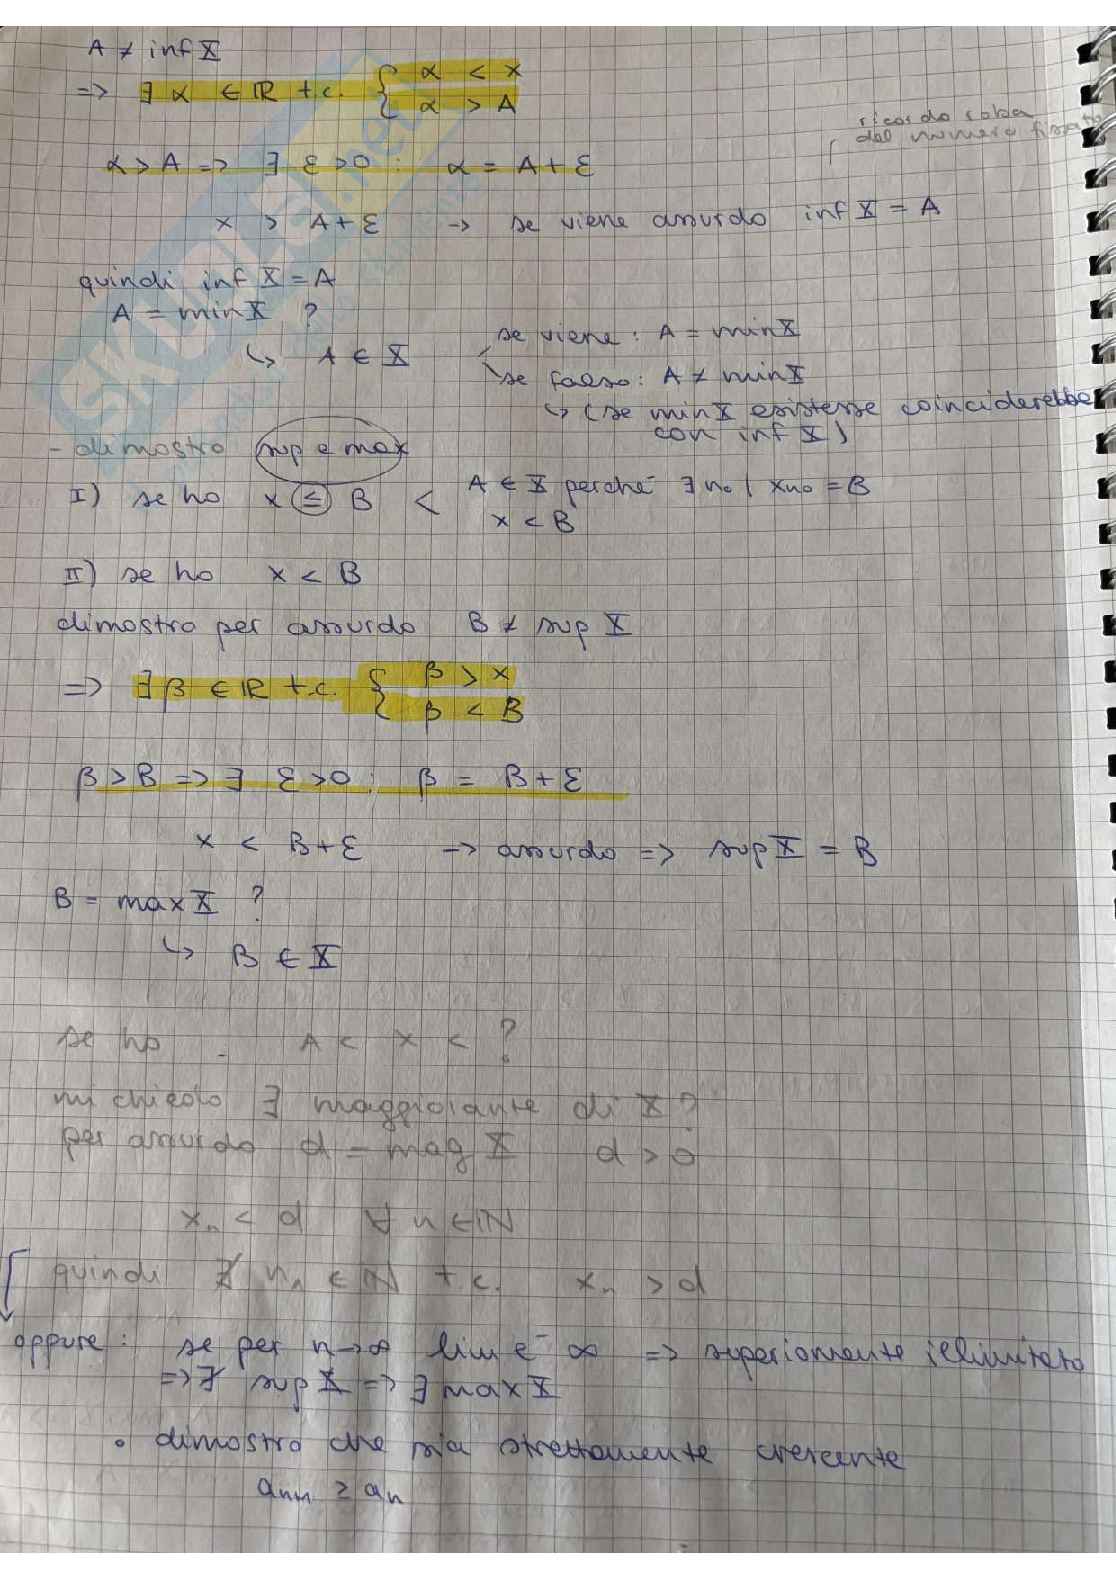 A ≠ inf X
=> ∃ α ∈ ℝ t.c. { α < x
α > A
ricordo roba
del numero
α > A => ∃ ε > 0 : α = A + ε
x > A + ε → se viene assurdo inf X = A
quindi inf X = A
A = min X ?
↳ A ∈ X
se viene : A = min X
se falso : A ≠ min X
↳ (se min X esistesse coinciderebbe
con inf X)
- dimostro sup e max
I) se ho x ≤ B < A ∈ X perché ∃ n₀ | xn₀ = B
x < B
II) se ho x < B
dimostro per assurdo B ≠ sup X
=> ∃ β ∈ ℝ t.c. { β > x
β < B
β > B => ∃ ε > 0 : β = B + ε
x < B + ε → assurdo => sup X = B
B = max X ?
↳ B ∈ X
se ho A < x < ?
mi chiedo ∃ maggiorante di X ?
per assurdo d = mag X d > 0
xₙ < d ∀ n ∈ ℕ
quindi ∄ nₙ ∈ ℕ t.c. xₙ > d
oppure : se per n→∞ lim è ∞ => superiormente illimitato
=> ∄ sup X => ∃ max X
• dimostro che sia strettamente crescente
aₙ₊₁ ≥ aₙ
SKUOLA.net